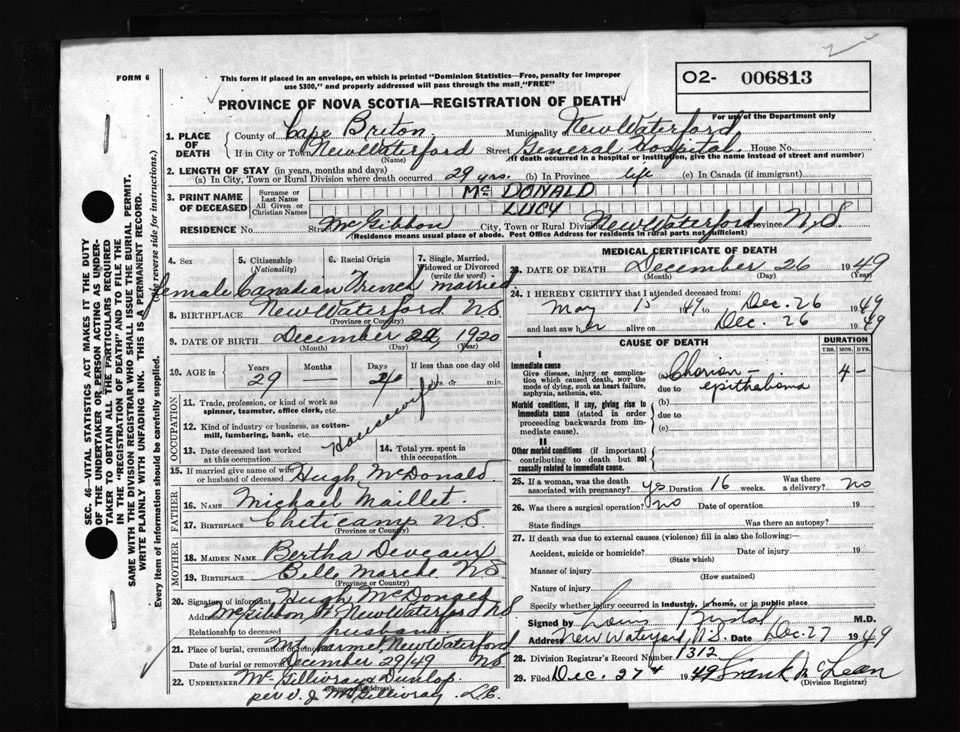 FORM 6
This form if placed in an envelope, on which is printed "Dominion Statistics—Free, penalty for improper
use $300," and properly addressed will pass through the mail "FREE"
O2- 006813
PROVINCE OF NOVA SCOTIA—REGISTRATION OF DEATH
For use of the Department only
1. PLACE OF DEATH
County of Cape Breton Municipality New Waterford
If in City or Town New Waterford Street General Hospital. House No.
(Name) (If death occurred in a hospital or institution, give the name instead of street and number)
2. LENGTH OF STAY (in years, months and days)
(a) In City, Town or Rural Division where death occurred 29 yrs. (b) In Province life (c) In Canada (if immigrant)
3. PRINT NAME OF DECEASED
Surname or Last Name McDONALD
All Given or Christian Names LUCY
RESIDENCE No. Street McGibbon City, Town or Rural Division New Waterford Province N.S.
(Residence means usual place of abode. Post Office Address for residents in rural parts not sufficient)
4. Sex 5. Citizenship (Nationality) 6. Racial Origin 7. Single, Married, Widowed or Divorced (write the word)
female Canadian French married
8. BIRTHPLACE New Waterford N.S.
(Province or Country)
9. DATE OF BIRTH December 1920
(Month) (Day) (Year)
10. AGE in Years Months Days If less than one day old
29 — hrs. or min.
OCCUPATION
11. Trade, profession, or kind of work as spinner, teamster, office clerk, etc.
Housewife
12. Kind of industry or business, as cotton-mill, lumbering, bank, etc.
13. Date deceased last worked at this occupation
14. Total yrs. spent in this occupation
15. If married give name of wife or husband of deceased Hugh McDonald
FATHER
16. NAME Michael Maillet
17. BIRTHPLACE Cheticamp N.S.
(Province or Country)
MOTHER
18. MAIDEN NAME Bertha Deveaux
19. BIRTHPLACE Belle Marche N.S.
(Province or Country)
20. Signature of informant Hugh McDonald
Address McGibbon St New Waterford N.S
Relationship to deceased husband
21. Place of burial, cremation or removal Mt Carmel, New Waterford
Date of burial or removal December 29/49 N.S
22. UNDERTAKER McGillivray Dunlop
(Name and address)
per V. J McGillivray L.E.
MEDICAL CERTIFICATE OF DEATH
23. DATE OF DEATH December 26 1949
(Month) (Day) (Year)
24. I HEREBY CERTIFY that I attended deceased from:
May 15 1949 to Dec. 26 1949
and last saw her alive on Dec. 26 1949
CAUSE OF DEATH DURATION
YRS. MOS. DYS.
I
Immediate cause
Give disease, injury or complication which caused death, not the mode of dying, such as heart failure, asphyxia, asthenia, etc.
(a) Chorion- 4 -
due to epithelioma
Morbid conditions, if any, giving rise to immediate cause (stated in order proceeding backwards from immediate cause).
(b)
due to
(c)
II
Other morbid conditions (if important) contributing to death but not causally related to immediate cause.
25. If a woman, was the death associated with pregnancy? yes Duration 16 weeks. Was there a delivery? no
26. Was there a surgical operation? no Date of operation 19
State findings Was there an autopsy?
27. If death was due to external causes (violence) fill in also the following:
Accident, suicide or homicide? Date of injury 19
(State which)
Manner of injury
(How sustained)
Nature of injury
Specify whether injury occurred in industry, in home, or in public place
Signed by Louis M.D.
Address New Waterford, N.S. Date Dec. 27 1949
28. Division Registrar's Record Number 1312
29. Filed Dec. 27th 1949 Frank McLean
(Division Registrar)
SEC. 46—VITAL STATISTICS ACT MAKES IT THE DUTY
OF THE UNDERTAKER OR PERSON ACTING AS UNDER-
TAKER TO OBTAIN ALL THE PARTICULARS REQUIRED
IN THE "REGISTRATION OF DEATH" AND TO FILE THE
SAME WITH THE DIVISION REGISTRAR WHO SHALL ISSUE THE BURIAL PERMIT.
WRITE PLAINLY WITH UNFADING INK. THIS IS A PERMANENT RECORD.
Every item of information should be carefully supplied. reverse side for instructions.)